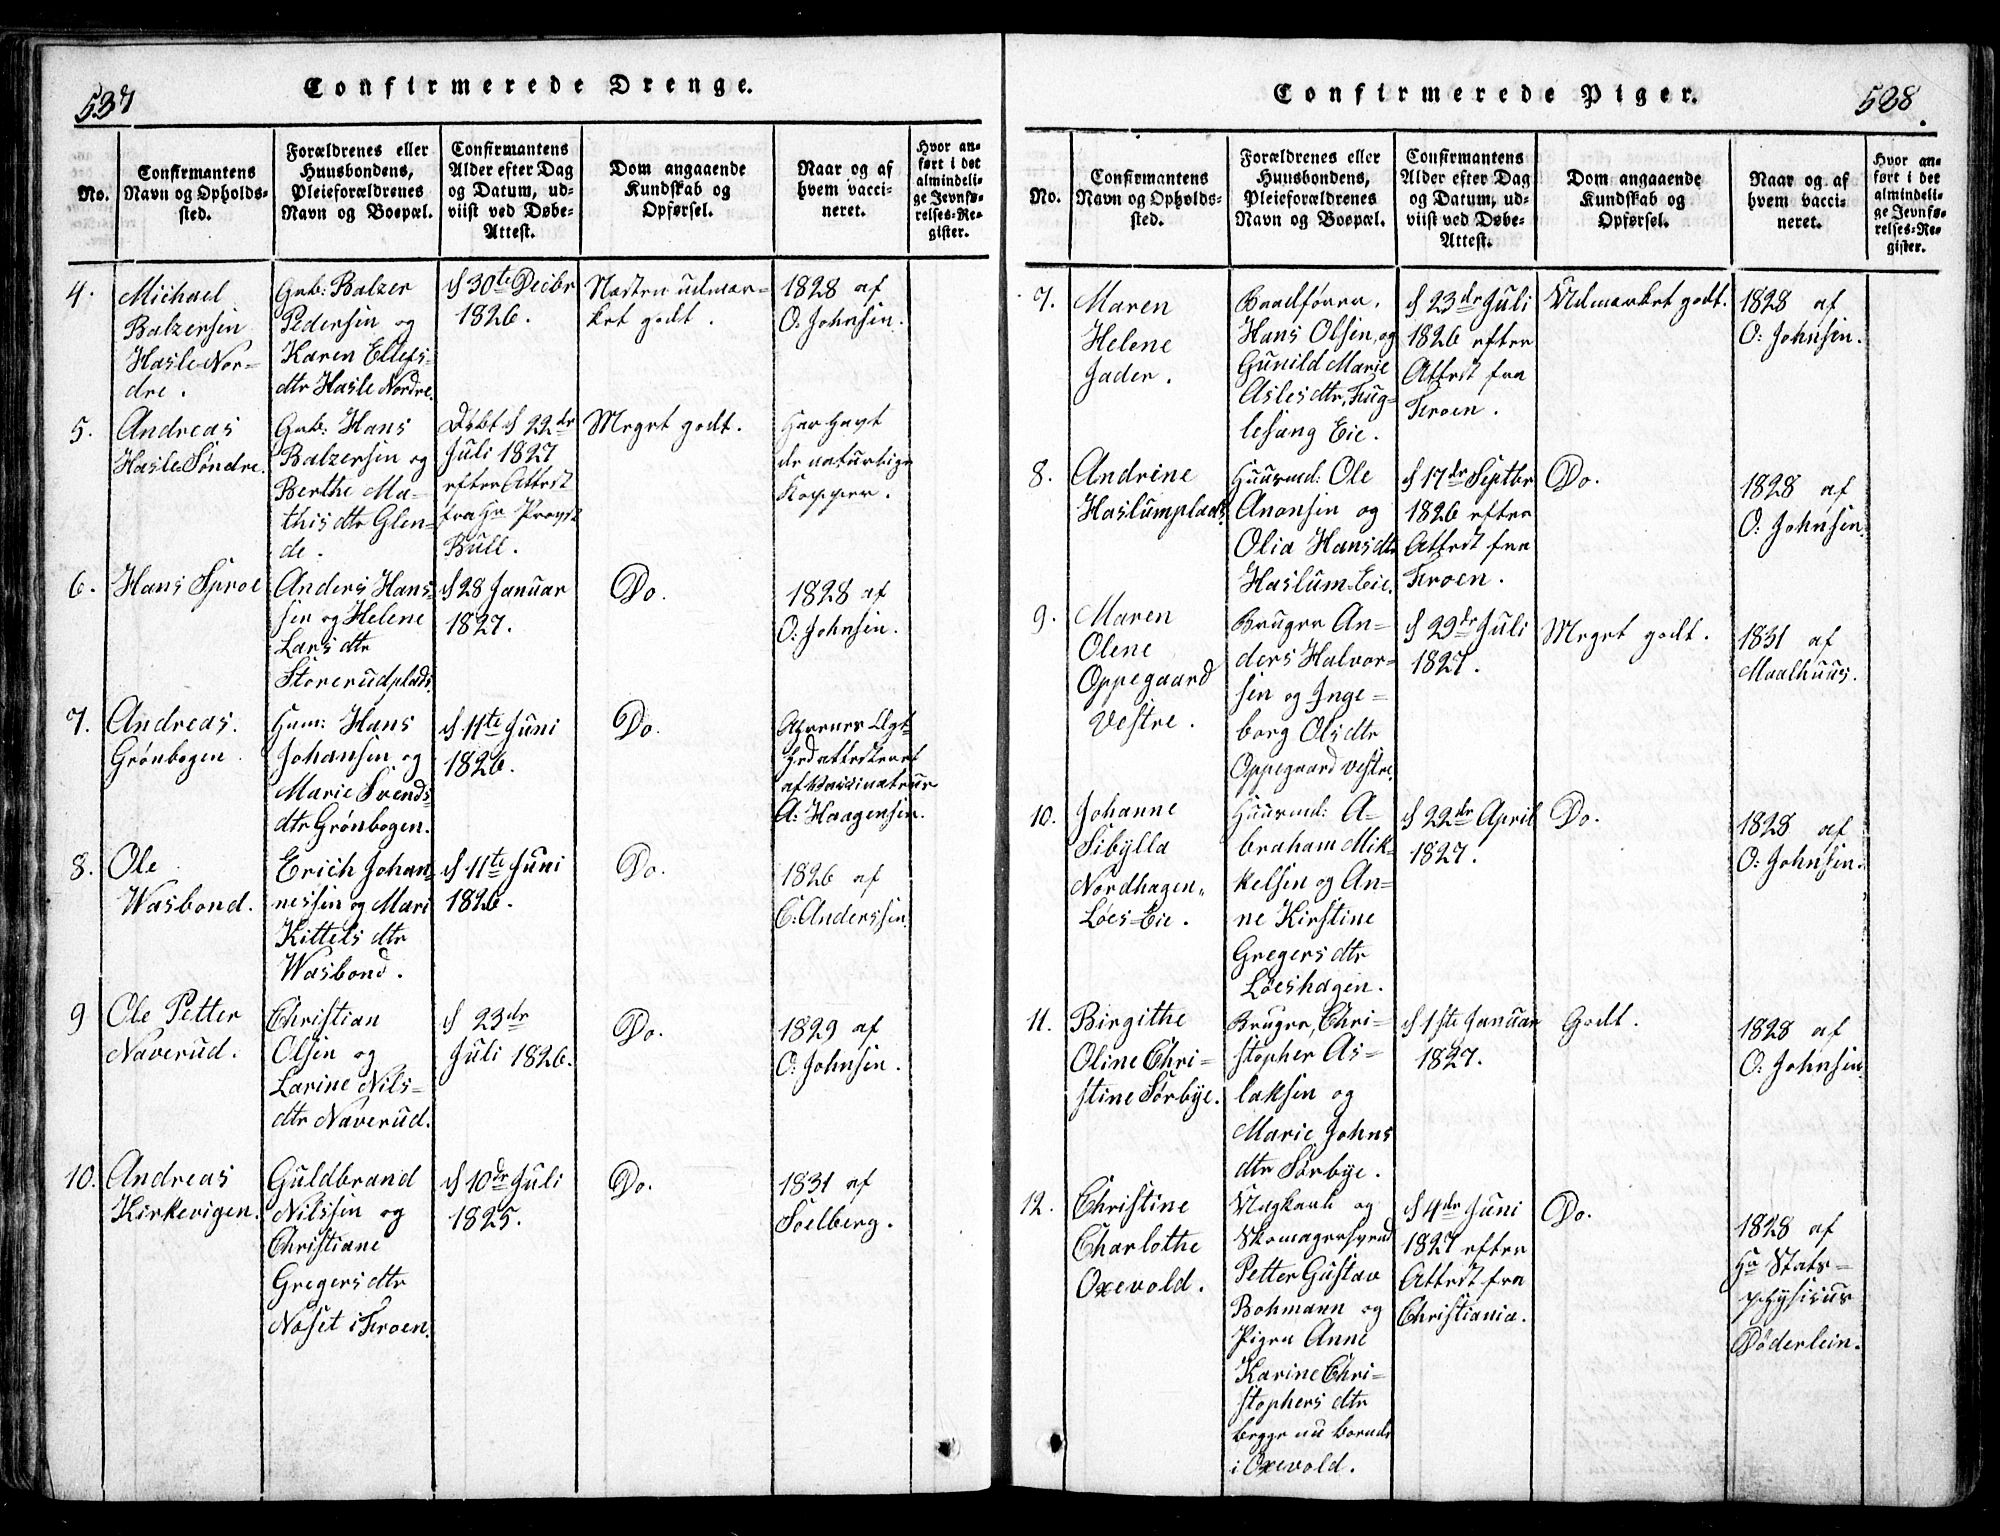 537
Confirmerede Drenge.
No.
Confirmantens
Navn og Opholds-
sted.
Forældrenes eller
Huusbondens,
Pleieforældrenes
Navn og Boepæl.
Confirmantens
Alder efter Dag
og Datum, ud-
viist ved Døbe-
Attest.
Dom angaaende
Kundskab og
Opførsel.
Naar og af
hvem vacci-
neret.
Hvor an-
ført i det
almindeli-
ge Jevnfø-
relses-Re-
gister.
4.
Michael
Balzersen
Hasle Nor-
dre.
Gnb: Balzer
Pedersen og
Karen Ellefs-
dtr Hasle Nordre.
d 30te Decbr
1826.
Næsten udmær-
ket godt.
1828 af
O: Johnsen.
5.
Andreas
Hasle Søndre.
Gnb: Hans
Balzersen og
Berthe Ma-
this dtr Glen-
de.
Døbt d 22dr
Juli 1827
efter Attest
fra Hr Provst
Bull.
Meget godt.
Har havt
de naturlige
Kopper.
6.
Hans Sproe
Anders Hans-
sen og Helene
Lars dtr
Storerudplads.
d 28 Januar
1827.
Do.
1828 af
O: Johnsen.
7.
Andreas
Grønbogen
Hum: Hans
Johansen og
Marie Svends-
dtr Grønbogen.
d 11te Juni
1826.
Do.
attesteret
af Vaccinateur
A: Haagensen.
8.
Ole
Wasbond.
Erich Johan-
nessen og Mari
Kittels dtr
Wasbond.
d 11te Juni
1826.
Do.
1826 af
C: Anderssen.
9
Ole Petter
Naverud.
Christian
Olsen og
Larine Nils-
dtr Naverud.
d 23dr
Juli 1826.
Do.
1829 af
O: Johnsen.
10.
Andreas
Kirkevigen.
Guldbrand
Nilssen og
Christiane
Gregers dtr
Noset i Froen.
d 10dr Juli
1825.
Do.
1831 af
Soelberg.
Confirmerede Piger.
538.
No.
Confirmantens
Navn og Opholds-
sted.
Forældrenes eller
Huusbondens,
Pleieforældrenes
Navn og Boepæl.
Confirmantens
Alder efter Dag
og Datum, ud-
viist ved Døbe-
Attest.
Dom angaaende
Kundskab og
Opførsel.
Naar og af
hvem vacci-
neret.
Hvor an-
ført i det
almindeli-
ge Jevnfø-
relses-Re-
gister.
7.
Maren
Helene
Jader.
Baadfører,
Hans Olsen, og
Gunild Marie
Asles dtr, Fug-
lesang Eie.
d 23dr Juli
1826 efter
Attest fra
Froen.
Udmærket godt.
1828 af
O: Johnsen.
8.
Andrine
Haslumplads.
Huusmd: Ole
Anonsen og
Olia Hans dtr
Haslum-Eie.
d 17dr Septbr
1826 efter
Attest fra
Froen.
Do.
1828 af
O: Johnsen.
9.
Maren
Olene
Oppegaard
Vestre.
Bruger An-
ders Halvor-
sen og Inge-
borg Ols dtr
Oppegaard vestre.
d 29dr Juli
1827.
Meget godt.
1831 af
Maalhuus.
10.
Johanne
Sibylla
Nordhagen,
Løes-Eie.
Huusmd: A-
braham Mik-
kelsen og An-
ne Kirstine
Gregers dtr
Løeshagen.
d 22dr April
1827.
Do.
1828 af
O: Johnsen.
11.
Birgithe
Oline Chri-
stine Sørbye.
Bruger, Chri-
stopher As-
laksen og
Marie Johns
dtr Sørbye.
d 1ste Januar
1827.
Godt.
1828 af
O: Johnsen.
12.
Christine
Charlothe
Oxevold.
Ungkarl og
Skomagersvend
Petter Gustav
Bohmann og
Pigen Anne
Karine Chri-
stophers dtr
begge nu boende
i Oxevold.
d 4dr Juni
1827 efter
Attest fra
Christiania.
Do.
1828 af
Hr Stats-
physicus
Døderlein.